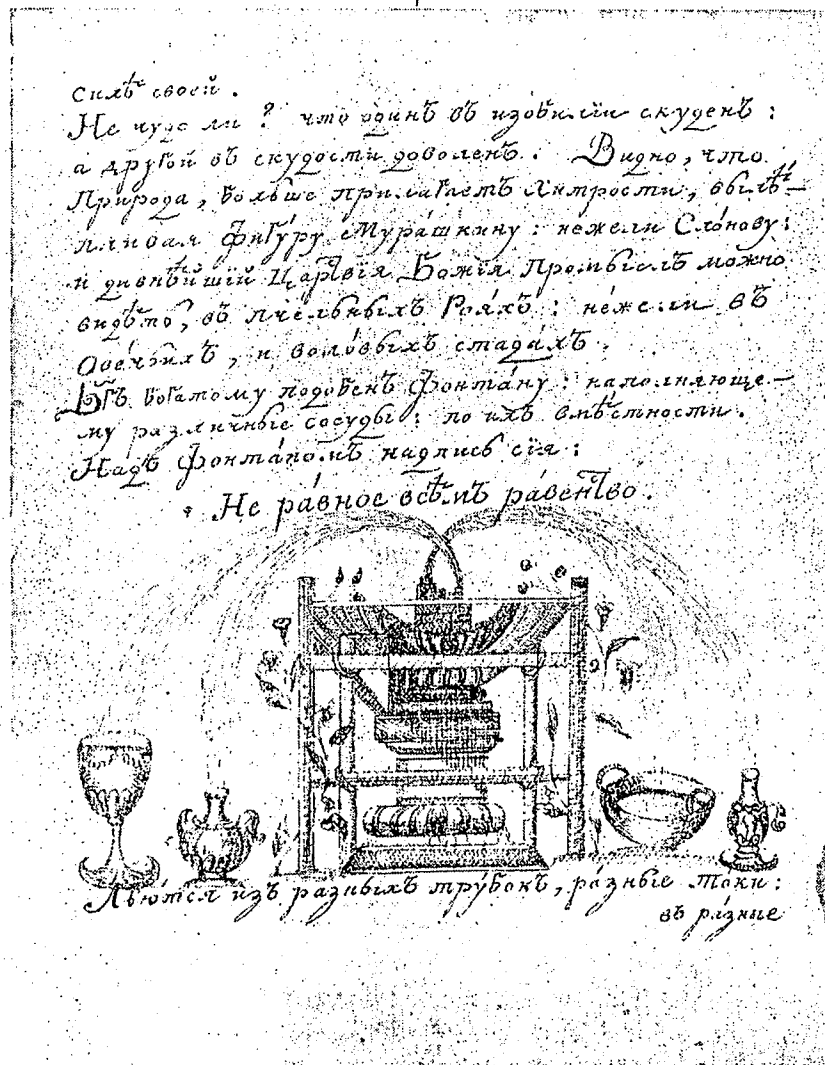 силѣ своей.
Не чудо ли? что одинъ въ изобилїи скуденъ:
а другой въ скудости доволенъ. Видно, что
Природа, больше прилагаетъ Хитрости, вылѣ-
пливая Фигу́ру Мура́шкину: нежели Сло́нову:
и дивнѣ́йшїй Царствїя Бо́жїя Промыслъ можно
видѣть, въ пче́льныхъ Роя́хъ: не́жели въ
Ове́чїихъ, и воло́выхъ стада́хъ.
Бгъ богатому подобенъ Фонта́ну: наполняюще-
му различные сосуды: по ихъ вмѣ́стности.
Надъ Фонта́номъ надпись сїя:
Не ра́вное всѣ́мъ ра́венство.
Лью́тся изъ разныхъ тру́бокъ, ра́зные токи:
въ ра́зные